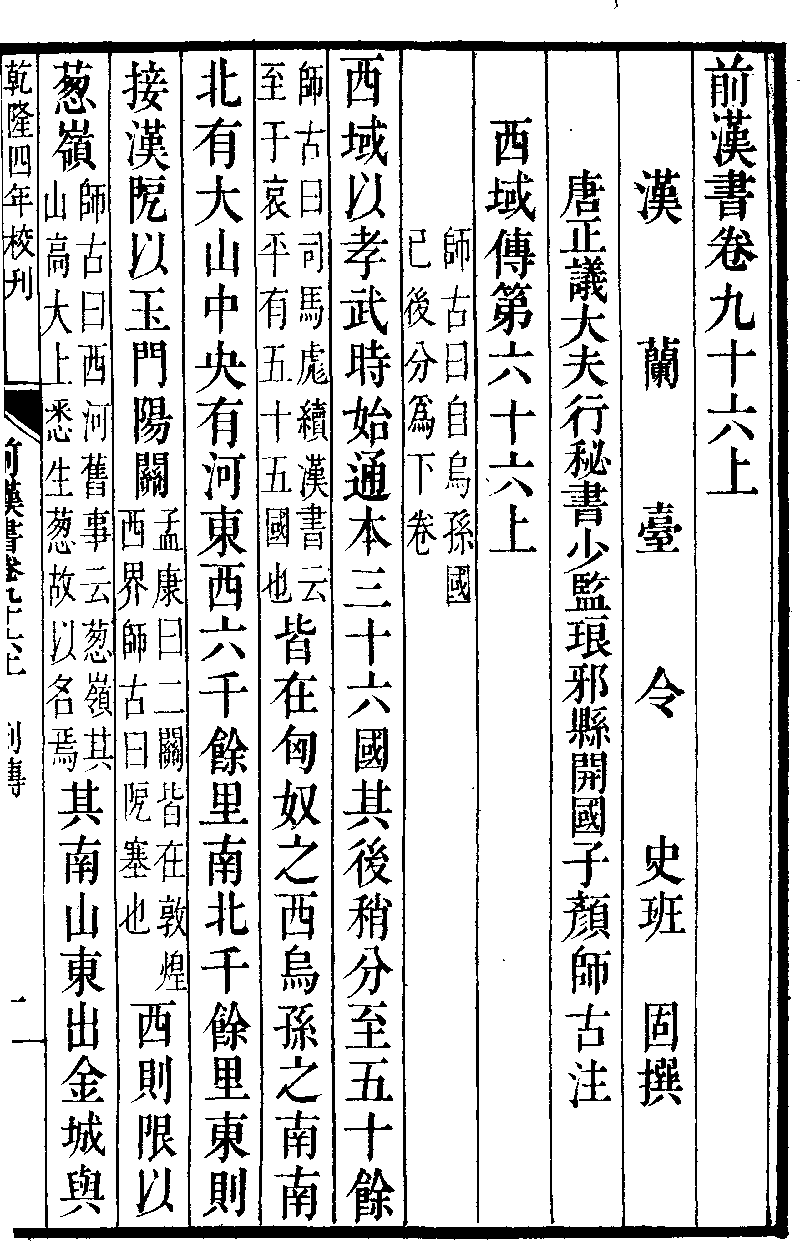 前漢書卷九十六上
漢蘭臺令史班固撰
唐正議大夫行秘書少監琅邪縣開國子顏師古注
西域傳第六十六上
師古曰自烏孫國
已後分爲下卷
西域以孝武時始通本三十六國其後稍分至五十餘
師古曰司馬彪續漢書云
至于哀平有五十五國也
皆在匈奴之西烏孫之南南
北有大山中央有河東西六千餘里南北千餘里東則
接漢阸以玉門陽關
孟康曰二關皆在敦煌
西界師古曰阸塞也
西則限以
葱嶺
師古曰西河舊事云葱嶺其
山高大上悉生葱故以名焉
其南山東出金城與
乾隆四年校刊
前漢書卷九十六上
列傳
一